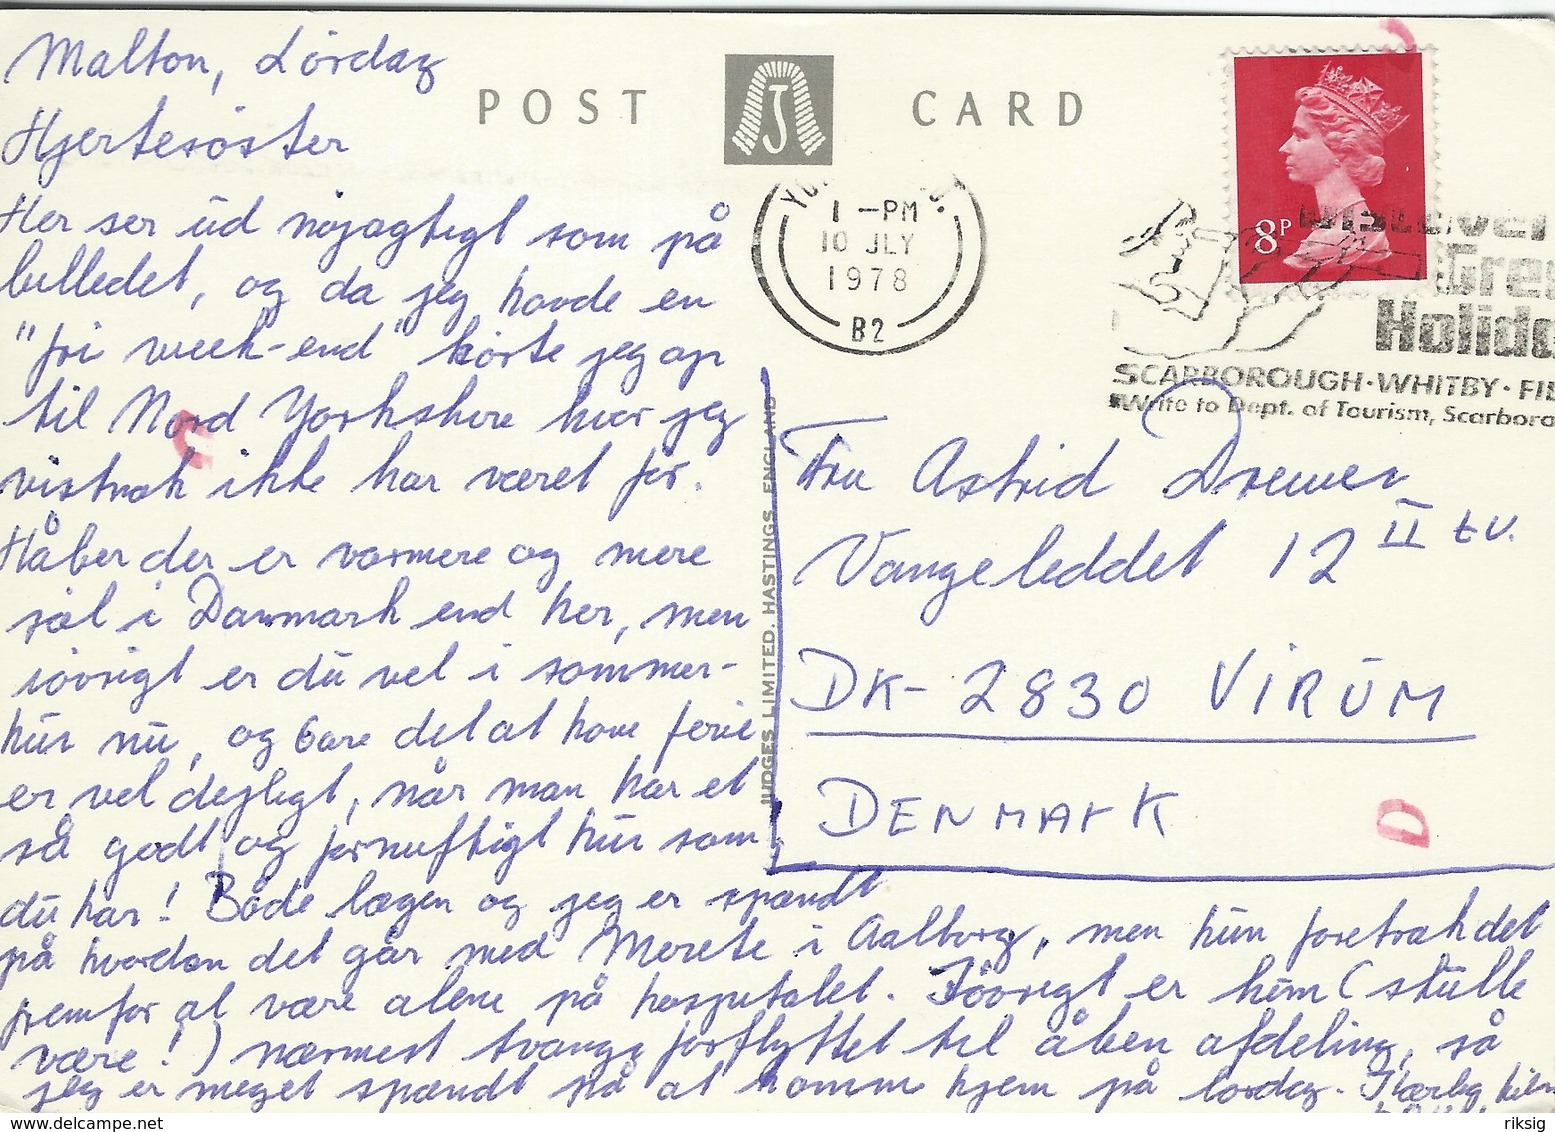 Malton, Lördag
POST CARD
J
Hjertesöster
Her ser ud nöjagtigt som på
billedet, og da jeg havde en
"fri week-end" körte jeg op
til Nord Yorkshire hvor jeg
vistnok ikke har været før.
Håber der er varmere og mere
sol i Danmark end her, men
iövrigt er du vel i sommer-
hus nu, og bare det at have ferie
er vel dejligt, når man har et
så godt og fornuftigt hus som
du har! Både lægen og jeg er spændt
på hvordan det går med Merete i Aalborg, men hun foretrak det
fremfor at være alene på hospitalet. Iövrigt er hun (skulle
være!) nærmest tvangsforflyttet til åben afdeling, så
jeg er meget spændt på at komme hjem på lördag. Kærlig hilsen
8P
1-PM
10 JLY
1978
B2
Discover
Gre
Holida
SCARBOROUGH·WHITBY·FI
Write to Dept. of Tourism, Scarboro
JUDGES LIMITED. HASTINGS. ENGLAND
Fru Astrid Dremer
Vangeleddet 12 II tv.
DK-2830 VIRUM
DENMARK
D
delcampe.net
riksig